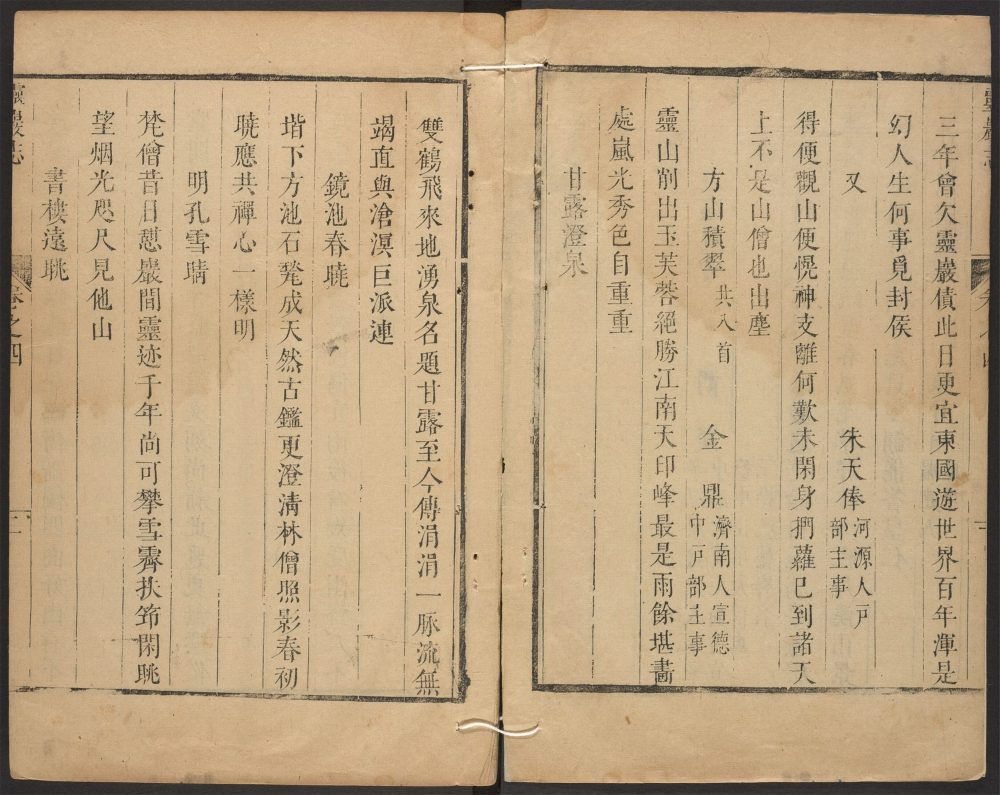 靈巖志
三年曾欠靈巖債此日更宜東國遊世界百年渾是
幻人生何事覓封侯
又
朱天俸
河源人戸
部主事
得便觀山便愰神支離何歎未閑身捫蘿已到諸天
上不是山僧也出塵
方山積翠
共八首
金鼎
濟南人宣德
中戸部主事
靈山削出玉芙蓉絕勝江南天印峰最是雨餘堪畵
處嵐光秀色自重重
甘露澄泉
雙鶴飛來地湧泉名題甘露至今傳涓涓一脉流無
竭直與滄溟巨派連
鏡池春曉
堦下方池石甃成天然古鑑更澄淸林僧照影春初
曉應共禪心一樣明
明孔雪晴
梵僧昔日憇巖間靈迹千年尚可攀雪霽扶筇閑眺
望烟光咫尺見他山
書樓遠眺
靈巖志
卷之四
二